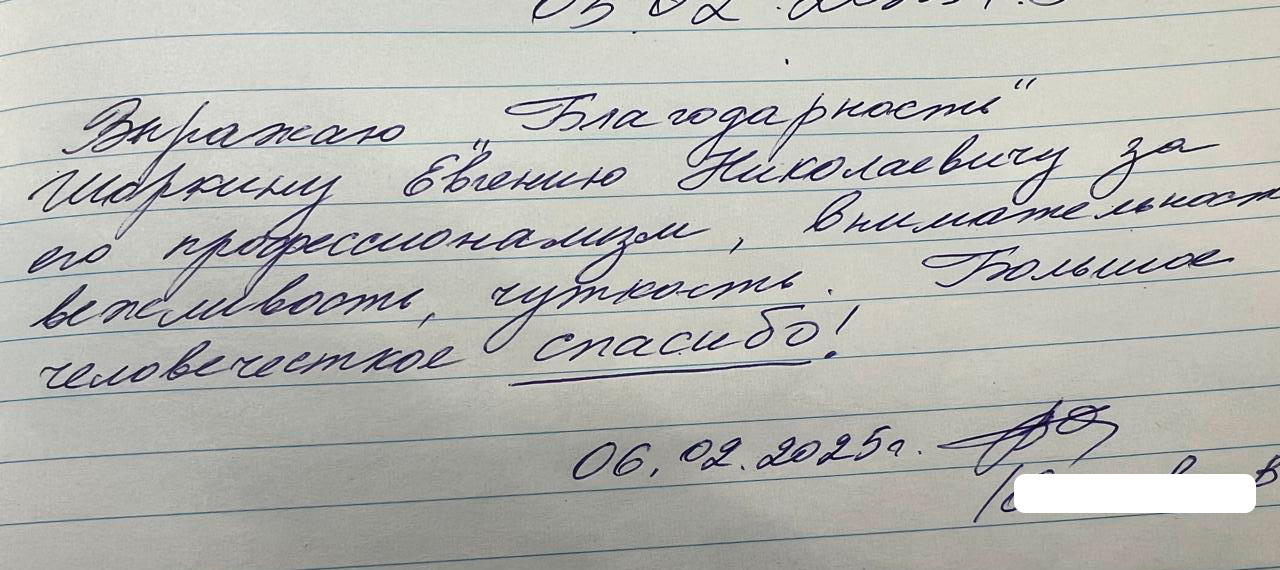 Выражаю "Благодарность"
Шаркину Евгению Николаевичу за
его профессионализм, внимательност
вежливость, чуткость. Большое
человечесткое спасибо!
06.02.2025г.